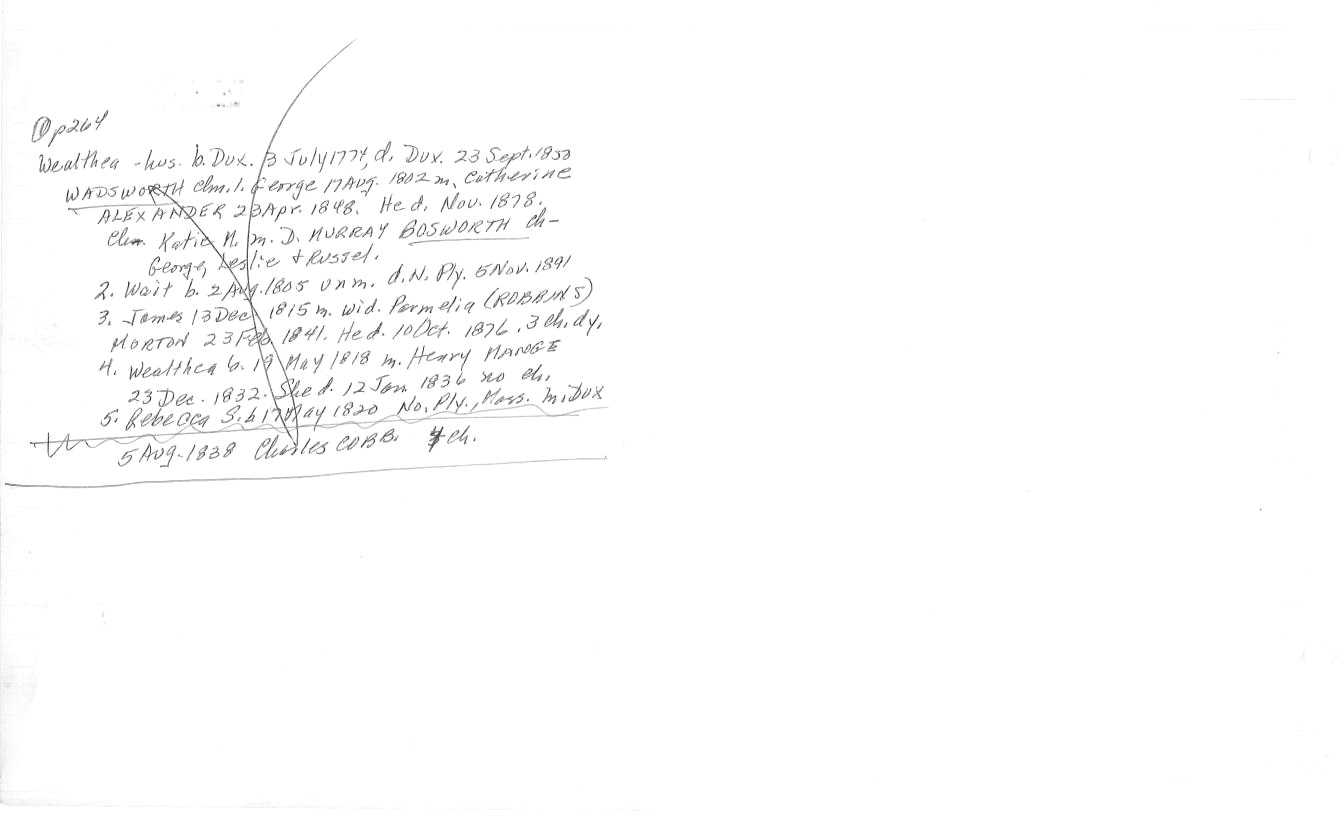 ① p264
Wealthea - hus. b. Dux. 3 July 1774, d. Dux. 23 Sept. 1850
WADSWORTH Chn. 1. George 17 Aug. 1802 m. Catherine
ALEXANDER 23 Apr. 1848. He d. Nov. 1878.
Chn. Katie M. m. D. MURRAY BOSWORTH ch-
George, Leslie + Russel.
2. Wait b. 2 Aug. 1805 unm. d. N. Ply. 5 Nov. 1891
3. James 13 Dec 1815 m. wid. Permelia (ROBBINS)
MORTON 23 Feb 1841. He d. 10 Oct. 1876. 3 ch. dy.
4. Wealthea b. 19 May 1818 m. Henry
23 Dec. 1832. She d. 12 Jan 1836 no ch.
5. Rebecca S. b 17 May 1820 No. Ply., Mass. m. Dux
5 Aug. 1838 Charles COBB. 4 ch.